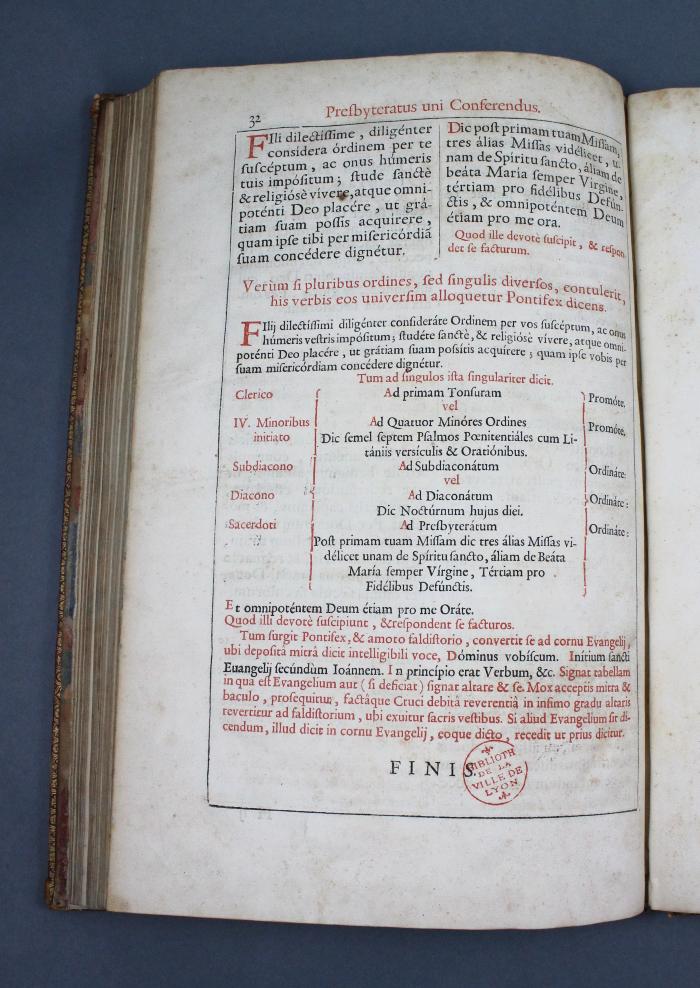 32
Presbyteratus uni Conferendus.
FIli dilectissime, diligénter
considera órdinem per te
suscéptum, ac onus húmeris
tuis impósitum; stude sanctè
& religiósè vívere, atque omni-
poténti Deo placére, ut grá-
tiam suam possis acquirere,
quam ipse tibi per misericórdiã
suam concédere dignétur.
Dic post primam tuam Missam,
tres álias Missas vidélicet, u-
nam de Spíritu sancto, áliam de
beáta María semper Vírgine,
tértiam pro fidélibus Defún-
ctis, & omnipoténtem Deum
étiam pro me ora.
Quod ille devotè suscipit, & respon-
det se facturum.
Verùm si pluribus ordines, sed singulis diversos, contulerit,
his verbis eos universim alloquetur Pontifex dicens.
FIlij dilectíssimi diligénter consideráte Ordinem per vos suscéptum, ac onus
húmeris vestris impósitum; studéte sanctè, & religiósè vívere, atque omni-
poténti Deo placére, ut grátiam suam possítis acquírere; quam ipse vobis per
suam misericórdiam concédere dignétur.
Tum ad singulos ista singulariter dicit.
Clerico { Ad primam Tonsuram } Promóte.
vel
IV. Minoribus { Ad Quatuor Minóres Ordines } Promóte.
initiato Dic semel septem Psalmos Pœnitentiáles cum Li-
tániis versículis & Oratiónibus.
Subdiacono { Ad Subdiaconátum } Ordináte:
vel
Diacono { Ad Diaconátum } Ordináte:
Dic Noctúrnum hujus diei.
Sacerdoti { Ad Presbyterátum } Ordináte:
Post primam tuam Missam dic tres álias Missas vi-
délicet unam de Spíritu sancto, áliam de Beáta
María semper Vírgine, Tértiam pro
Fidélibus Defúnctis.
Et omnipoténtem Deum étiam pro me Oráte.
Quod illi devotè suscipiunt, & respondent se facturos.
Tum surgit Pontifex, & amoto faldistorio, convertit se ad cornu Evangelij,
ubi deposita mitrâ dicit intelligibili voce, Dóminus vobíscum. Initium sancti
Euangelij secúndùm Ioánnem. In princípio erat Verbum, &c. Signat tabellam
in qua est Evangelium aut (si deficiat) signat altare & se. Mox acceptis mitra &
baculo, prosequitur, factâque Cruci debitâ reverentiâ in infimo gradu altaris
revertitur ad faldistorium, ubi exuitur sacris vestibus. Si aliud Evangelium sit di-
cendum, illud dicit in cornu Evangelij, eoque dicto, recedit ut prius dicitur.
FINIS.
BIBLIOTH
DE LA
VILLE DE
LYON